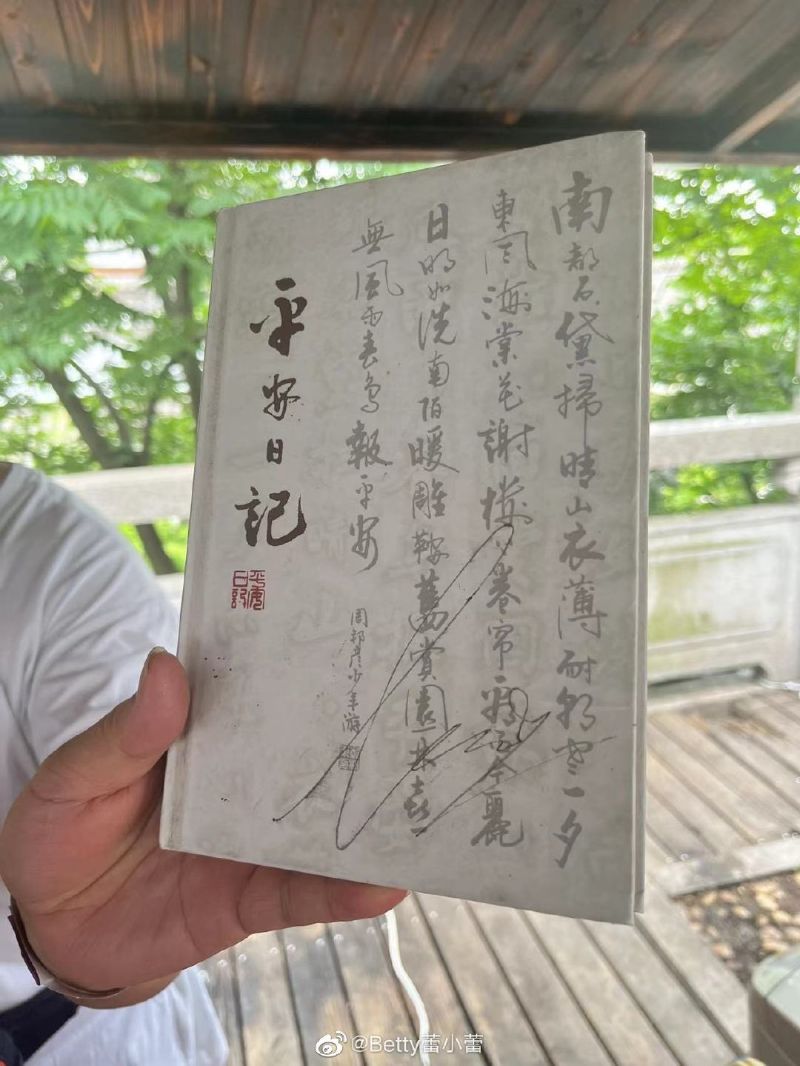 南都石黛掃晴山衣薄耐朝寒一夕
東風海棠花謝樓上卷帘看而今麗
日明如洗南陌暖雕鞍舊賞園林喜
無風雨春鳥報平安
周邦彥少年游
平安日記
平安日記
@Betty蕾小蕾